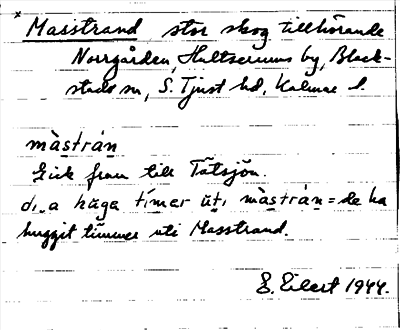 * Masstrand stor skog tillhörande
Norrgården, Hultserums by, Black-
stads sn, S. Tjust hd, Kalmar l.
màstrán
Gick fram till Tåtsjön.
di a hága tímer úti màstrán = de ha
huggit timmer uti Masstrand.
E. Eilert 1944.